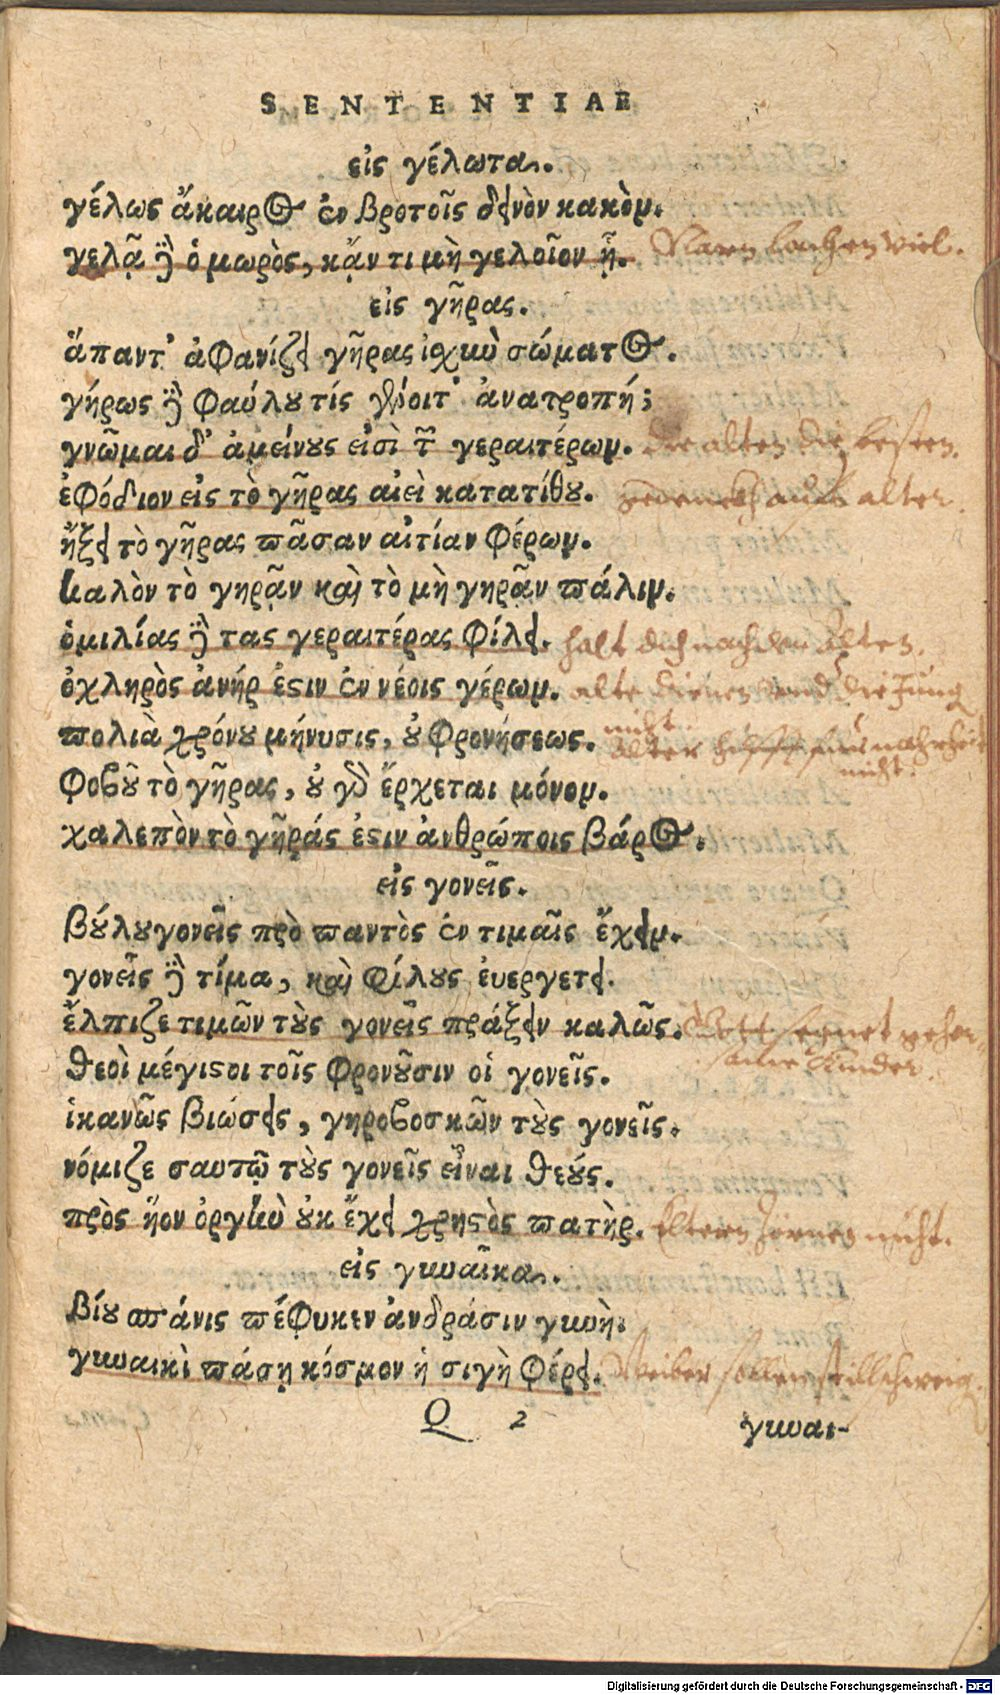 SENTENTIAE
εἰς γέλωτα.
γέλως ἄκαιρος ἐν βροτοῖς δεινὸν κακὸν.
γελᾷ δὲ ὁ μωρὸς, κᾄν τι μὴ γελοῖον ᾖ. Narren lachen viel.
εἰς γῆρας.
ἅπαντ' ἀφανίζει γῆρας ἰσχυὺ σώματος.
γήρως δὲ φαύλου τίς γένοιτ' ἀνατροπή;
γνῶμαι δ' ἀμείνους εἰσὶ τῶν γεραιτέρων. die alten die besten.
ἐφόδιον εἰς τὸ γῆρας αἰεὶ κατατίθου. alter.
ἥξει τὸ γῆρας πᾶσαν αἰτίαν φέρων.
καλὸν τὸ γηρᾷν καὶ τὸ μὴ γηρᾷν πάλιν.
ὁμιλίας δὲ τας γεραιτέρας φίλει. halt dich nach den Alten.
ὀχληρὸς ἀνήρ ἐστιν ἐν νέοις γέρων. alte dienen die Jung
nicht.
πολιὰ χρόνου μήνυσις, οὐ φρονήσεως. Alter
nicht.
φοβοῦ τὸ γῆρας, οὐ γὰρ ἔρχεται μόνον.
χαλεπὸν τὸ γῆράς ἐστιν ἀνθρώποις βάρος.
εἰς γονεῖς.
βούλου γονεῖς πρὸ παντὸς ἐν τιμαῖς ἔχειν.
γονεῖς δὲ τίμα, καὶ φίλους ἐυεργετει.
ἔλπιζε τιμῶν τοὺς γονεῖς πράξειν καλῶς. Gott segnet gehor-
same Kinder.
θεοὶ μέγιστοι τοῖς φρονοῦσιν οἱ γονεῖς.
ἱκανῶς βιώσεις, γηροβοσκῶν τοὺς γονεῖς.
νόμιζε σαυτῷ τοὺς γονεῖς εἶναι θεούς.
πρὸς ἥον ὀργὴν οὐκ ἔχει χρηστὸς πατὴρ. Eltern zürnen nicht.
εἰς γυναῖκα.
βίου σπάνις πέφυκεν ἀνδράσιν γυνὴ.
γυναικὶ πάσῃ κόσμον ἡ σιγὴ φέρει. Weiber sollen stillschweig
Q 2 γυναι-
Digitalisierung gefördert durch die Deutsche Forschungsgemeinschaft - DFG